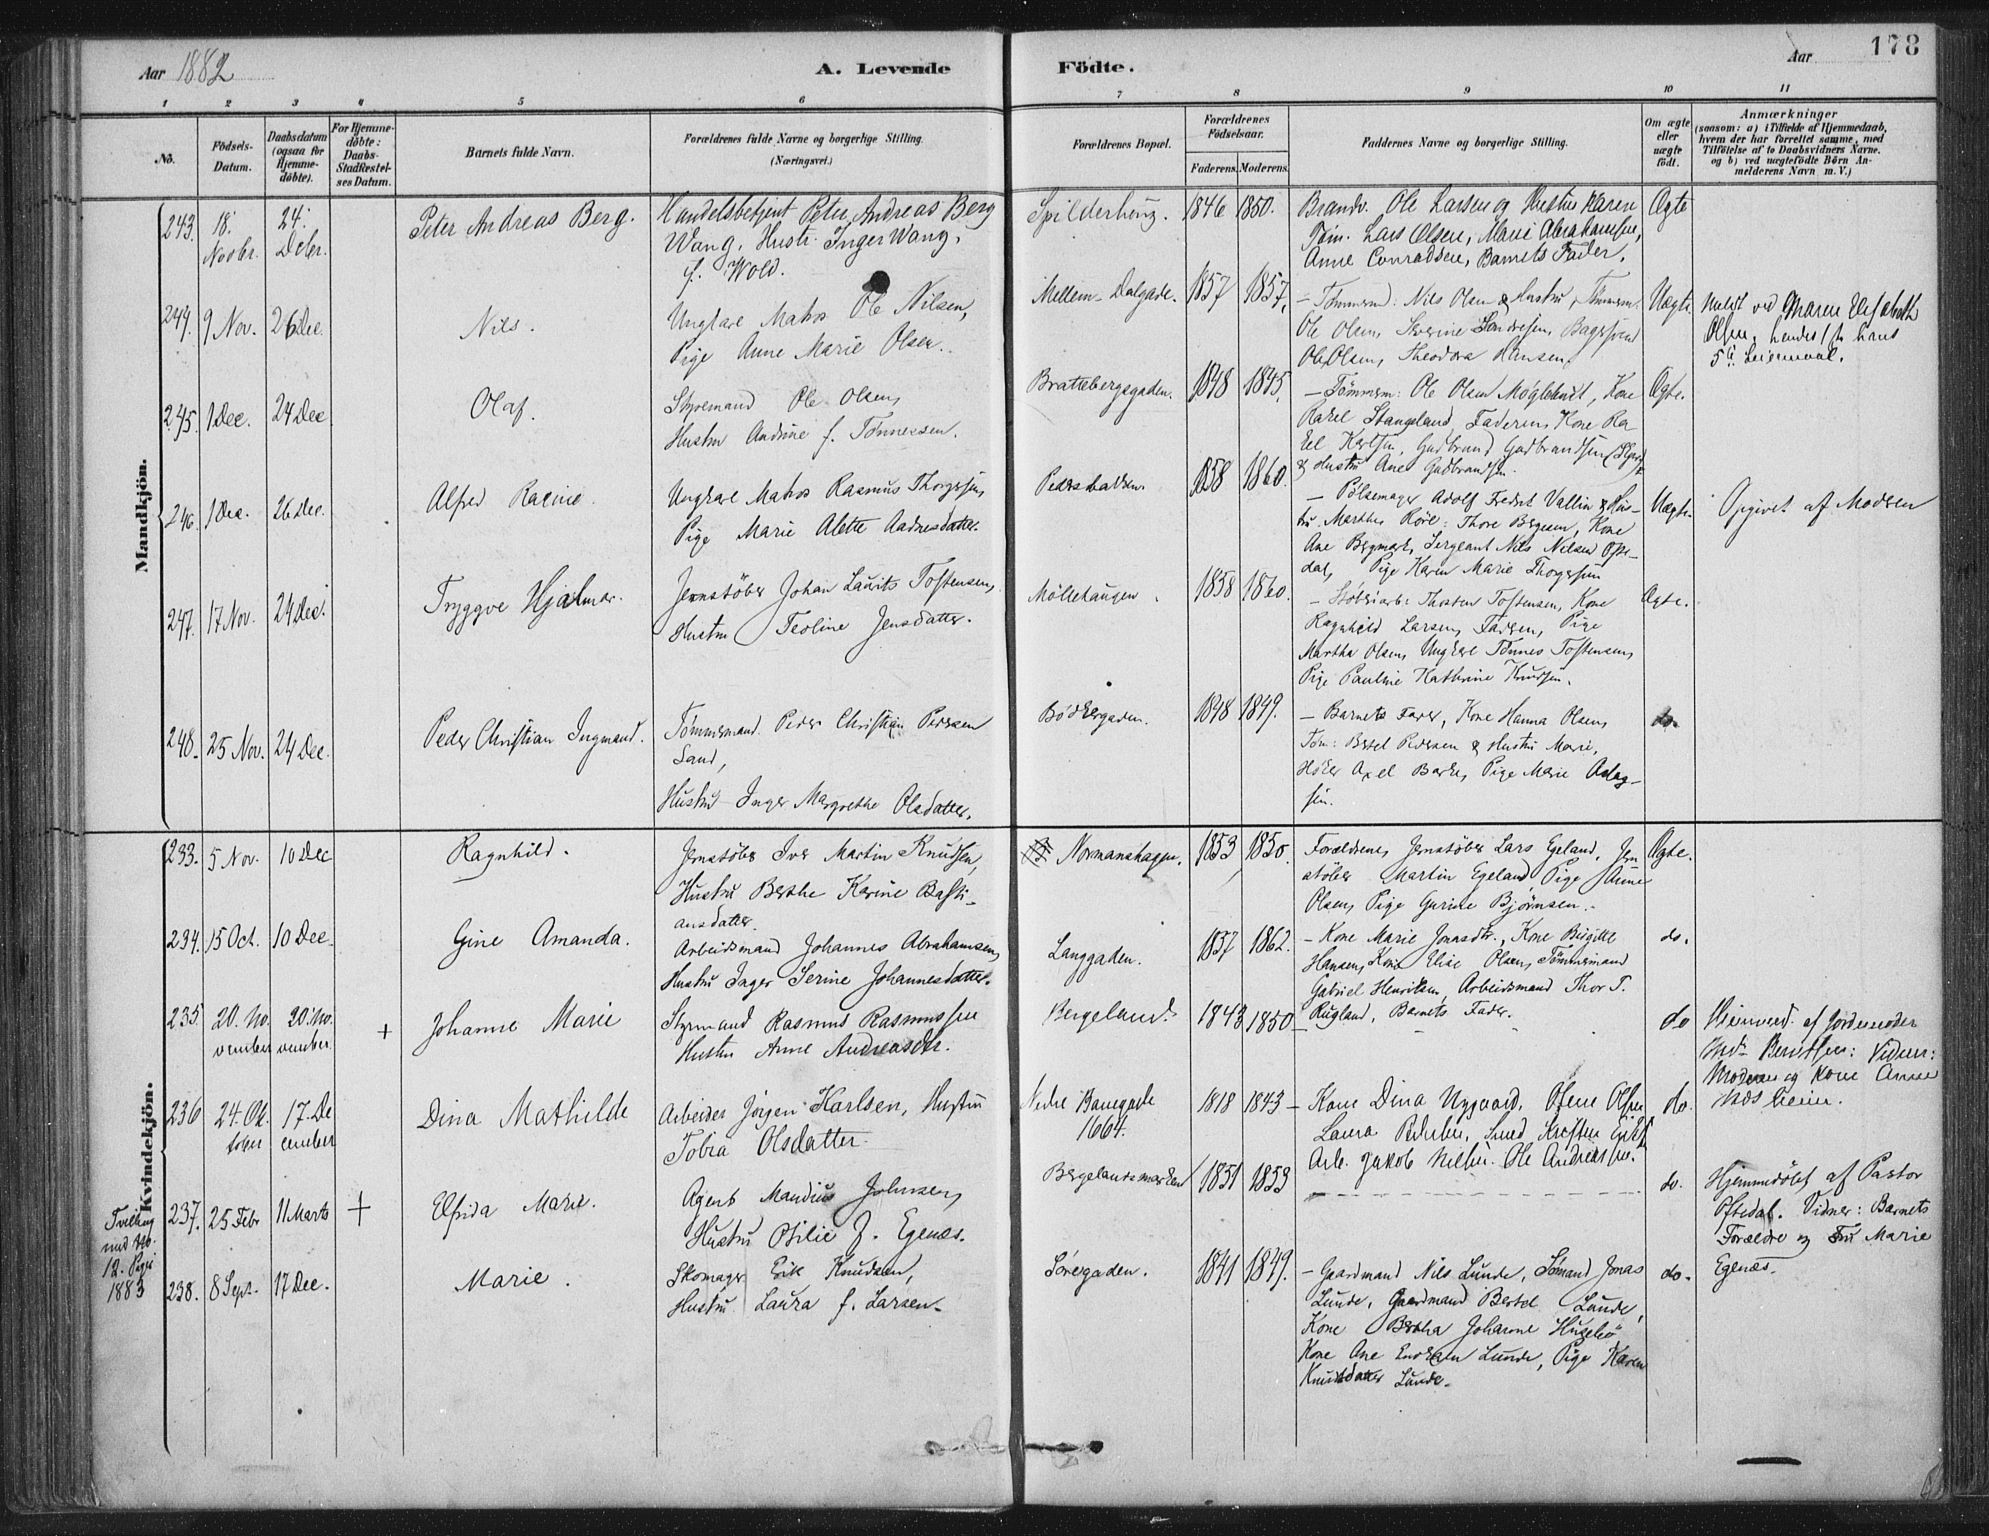 Aar 1882
A. Levende
Födte.
Aar
178
1 2 3 4 5 6 7 8 9 10 11
No.
Födsels-
Datum.
Daabsdatum
(ogsaa for
Hjemme-
döbte).
For Hjemme-
döbte:
Daabs-
Stadfæstel-
ses Datum.
Barnets fulde Navn.
Forældrenes fulde Navne og borgerlige Stilling.
(Næringsvei.)
Forældrenes Bopæl.
Forældrenes
Födselsaar.
Faderens. Moderens.
Faddernes Navne og borgerlige Stilling.
Om ægte
eller
uægte
født.
Anmærkninger
(saasom: a) i Tilfælde af Hjemmedaab,
hvem der har forrettet samme, med
Tilföielse af to Daabsvidners Navne.
og b) ved uægtefödte Börn An-
melderens Navn m. V.)
Mandkjön.
243.
18.
Novbr.
24.
Debr.
Peter Andreas Berg.
Handelsbetjent Peter Andreas Berg
Wang, Hustr. Inger Wang,
f. Wold.
Spilderhaug.
1846 1850.
Brandv. Ole Larsen og Hustru Karen
Lars Olsen, Marie Abrahamsen,
Anne Conradsen, Barnets Fader.
Ægte
244. 9 Nov. 26 Dec.
Nils.
Ungkarl Matros Ole Nilsen,
Pige Anne Marie Olsen.
Mellem-Dalgade.
1857 1857,
- Tømmerm: Nils Olsen & Hustru, Tømmerm.
Ole Olsen, Severine
Ole Olsen, Theodora Hansen.
Uægte.
Meldt ved Maren Elisabeth
Olsen, hendes hans
5te Leiermaal.
245. 1 Dec. 24 Dec
Olaf.
Styremand Ole Olsen,
Hustru Andrine f. Tönnessen.
Brattebergsgaden.
1848 1845.
- Tømmerm: Ole Olsen Møglebust, Kone
Rakel Stangeland, Faderen, Kone Ra-
kel Karlsen, Gudbrand Gudbrandsen
& Hustru Ane Gudbrandsen.
Ægte.
246. 1 Dec. 26 Dec.
Alfred Racine.
Ungkarl Matros Rasmus Thorgersen,
Pige Marie Alette Aadnesdatter.
Pedersbakken.
1858 1860.
- Pølsemager Adolf Fredrik Vallin & Hus-
tru. Marthe Röre: Thore Bergesen, Kone
Ane Bergmark, Sergeant Nils Nilsen Opse-
dal, Pige Karen Marie Thorgersen
Uægte.
Opgivet af Modren
247. 17 Nov. 24 Dec.
Tryggve Hjalmar.
Jernstöber Johan Laurits Tostensen,
Hustru Teoline Jensdatter.
Möllehaugen.
1858 1860.
- Støberiarb: Thosten Tostensen, Kone
Ragnhild Larsen, Fadren, Pige
Martha Olsen, Ungkarl Tönnes Tostensen,
Pige Pauline Kathrine Knudsen.
Ægte.
248. 25 Nov. 24 Dec.
Peder Christian Ingmand.
Tömmermand Peder Christian Pedersen
Sand,
Hustru Inger Margrethe Olsdatter.
Bödkergaden.
1848 1849.
- Barnets Fader, Kone Hanna Olsen,
Töm: Bertel Pedersen & Hustru Marie,
Höker Axel Barke, Pige Marie Aslag-
sen.
do.
Kvindekjön.
233. 5 Nov. 10 Dec
Ragnhild.
Jernstöber Iver Martin Knudsen,
Hustru Berthe Karine Basti-
ansdatter.
Normanshagen.
1853 1850.
Forældrene, Jernstöber Lars Egeland, Jern
stöber Martin Egeland, Pige Anne
Olsen, Pige Gurine Bjørnsen.
Ægte.
234. 15 Oct. 10 Dec.
Gine Amanda.
Arbeidsmand Johannes Abrahamsen,
Hustru Inger Serine Johannesdatter.
Langgaden.
1857 1862.
- Kone Marie Jonasdtr., Kone Birgitte
Hansen, Kone Elise Olsen, Tömmermand
Gabriel Henriksen, Arbeidsmand Thor T.
Rugland, Barnets Fader.
do.
235. 20. No
vember
20. No.
vember.
+
Johanne Marie
Styrmand Rasmus Rasmussen
Hustru Anne Andreasdtr.
Bergeland.
1843 1850
do
Hjemmed. af Jordemoder
Ind. Berntsen: Vidner:
Moderen og Kone Anne
Mosheim.
236 24. Ok
tober
17 De
cember
Dina Mathilde
Arbeider Jörgen Karlsen, Hustru
Tobia Olsdatter.
Nedre Banegade
1664.
1818 1843
- Kone Dina Nygaard.
Laura Pedersen, Smed
Arb. Jakob Nilsen. Ole Andreassen.
do.
Tvilling
med No.
12. Piger
1883
237. 25 Febr 11 Marts +
Elfrida Marie.
Agent Mandius Johnsen,
Hustru Otilie f. Egenæs.
Bergelandsmarken
1851 1853
do.
Hjemmedöbt af Pastor
Oftedal. Vidner: Barnets
Forældre og Fru Marie
Egenæs.
238. 8 Sept. 17 Dec.
Marie.
Skomager Erik Knudsen,
Hustru Laura f. Larsen.
Söregaden.
1841 1849.
- Gaardmand Nils Lunde, Sømand Jonas
Lunde, Gaardmand Bertel Lunde,
Kone Bertha Johanne Husebö
Kone Ane Lunde, Pige Karen
Knudsdatter Lunde.
do.